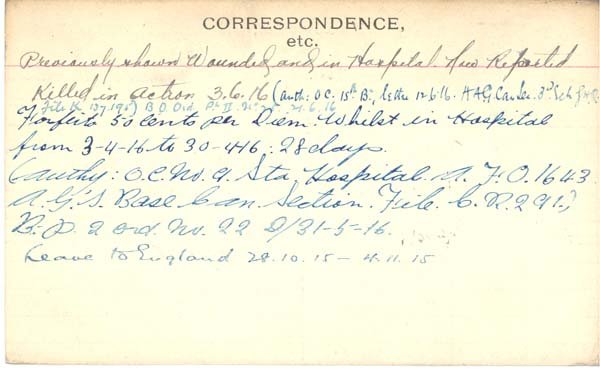 CORRESPONDENCE,
etc.
Previously shown Wounded and in Hospital. Now Reported
Killed in action 3.6.16 (auth: O.C. 15th Bn, letter 12.6.16. A.A.G. Can. Sec. 3rd Ech G.H.Q.
File K. B.O. Ord. Pt II 21.6.16
Forfeits 50 cents per Diem. Whilst in Hospital
from 3-4-16 to 30-4-16: 28 days.
(Authy: O.C. No. 9. Sta. Hospital. A. F. O. 1643.
A.G's. Base. Can. Section. File. C. R. 291.)
B. P. 2 Ord. No. 22 D/31-5-16.
Leave to England 28.10.15 – 4.11.15